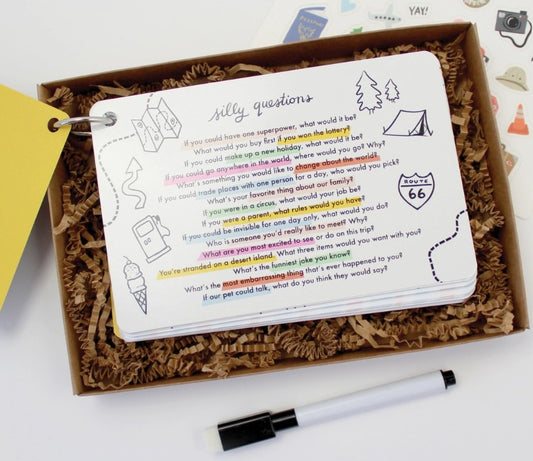 YAY!
PASSPORT
silly questions
If you could have one superpower, what would it be?
What would you buy first if you won the lottery?
If you could make up a new holiday, what would it be?
If you could go anywhere in the world, where would you go? Why?
What's something you would like to change about the world?
If you could trade places with one person for a day, who would you pick?
What's your favorite thing about our family?
If you were in a circus, what would your job be?
If you were a parent, what rules would you have?
If you could be invisible for one day only, what would you do?
Who is someone you'd really like to meet? Why?
What are you most excited to see or do on this trip?
You're stranded on a desert island. What three items would you want with you?
What's the funniest joke you know?
What's the most embarrassing thing that's ever happened to you?
If our pet could talk, what do you think they would say?
ROUTE
66